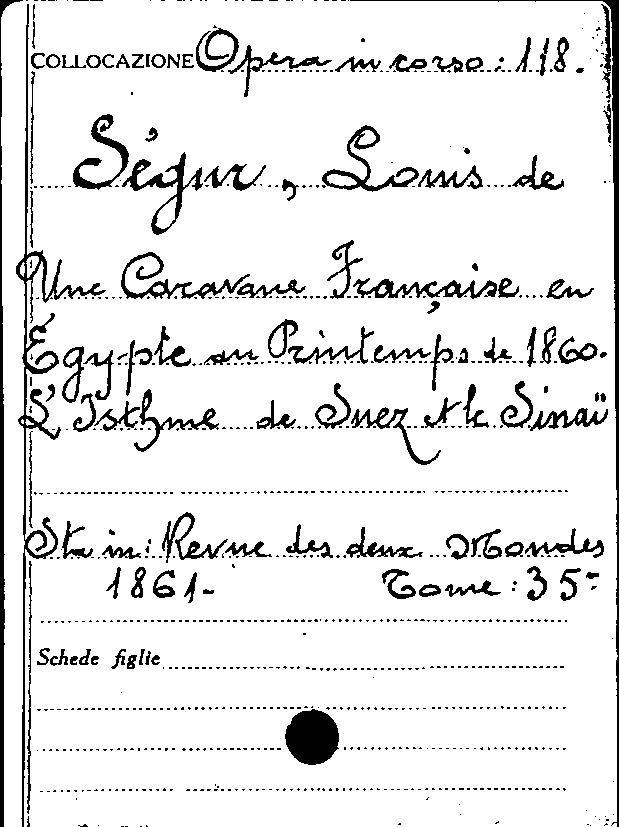 COLLOCAZIONE Opera in corso: 118.
Ségur, Louis de
Une Caravane Française en
Égypte au Printemps de 1860.
L'Isthme de Suez et le Sinaï
Sta in: Revue des deux Mondes
1861- Tome: 35-
Schede figlie